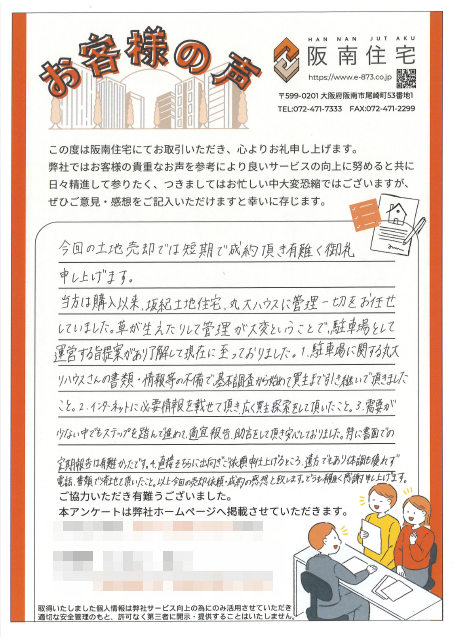 お客様の声
HAN NAN JUTAKU
阪南住宅
https://www.e-873.co.jp
〒599-0201 大阪府阪南市尾崎町53番地1
TEL:072-471-7333 FAX:072-471-2299
この度は阪南住宅にてお取引いただき、心よりお礼申し上げます。
弊社ではお客様の貴重なお声を参考により良いサービスの向上に努めると共に
日々精進して参りたく、つきましてはお忙しい中大変恐縮ではございますが、
ぜひご意見・感想をご記入いただけますと幸いに存じます。
今回の土地売却では短期で成約頂き有難く御礼
申し上げます。
当方は購入以来、阪紀土地住宅、丸大ハウスに管理一切をお任せ
していました。草が生えたりして管理が大変ということで、駐車場として
運営する旨提案があり了解して現在に至っておりました。1.駐車場に関する丸大
ハウスさんの書類・情報等の不備で基本調査から始めて買主まで引き継いで頂きました
こと。2.インターネットに必要情報を載せて頂き広く買主探索をして頂いたこと。3.需要が
少ない中でもステップを踏んで進めて、適宜報告、助言をして頂き安心しておりました。特に書面での
定期報告は有難かったです。4.直接そちらに出向きご依頼申し上げるところ、遠方でもあり体調も優れず
電話、書類で済ませて頂いたこと。以上今回の売却依頼・成約の感想と致します。どうも有難く感謝申し上げます。
ご協力いただき有難うございました。
本アンケートは弊社ホームページへ掲載させていただきます。
取得いたしました個人情報は弊社サービス向上の為にのみ活用させていただき
適切な安全管理のもと、許可なく第三者に開示・提供することはいたしません